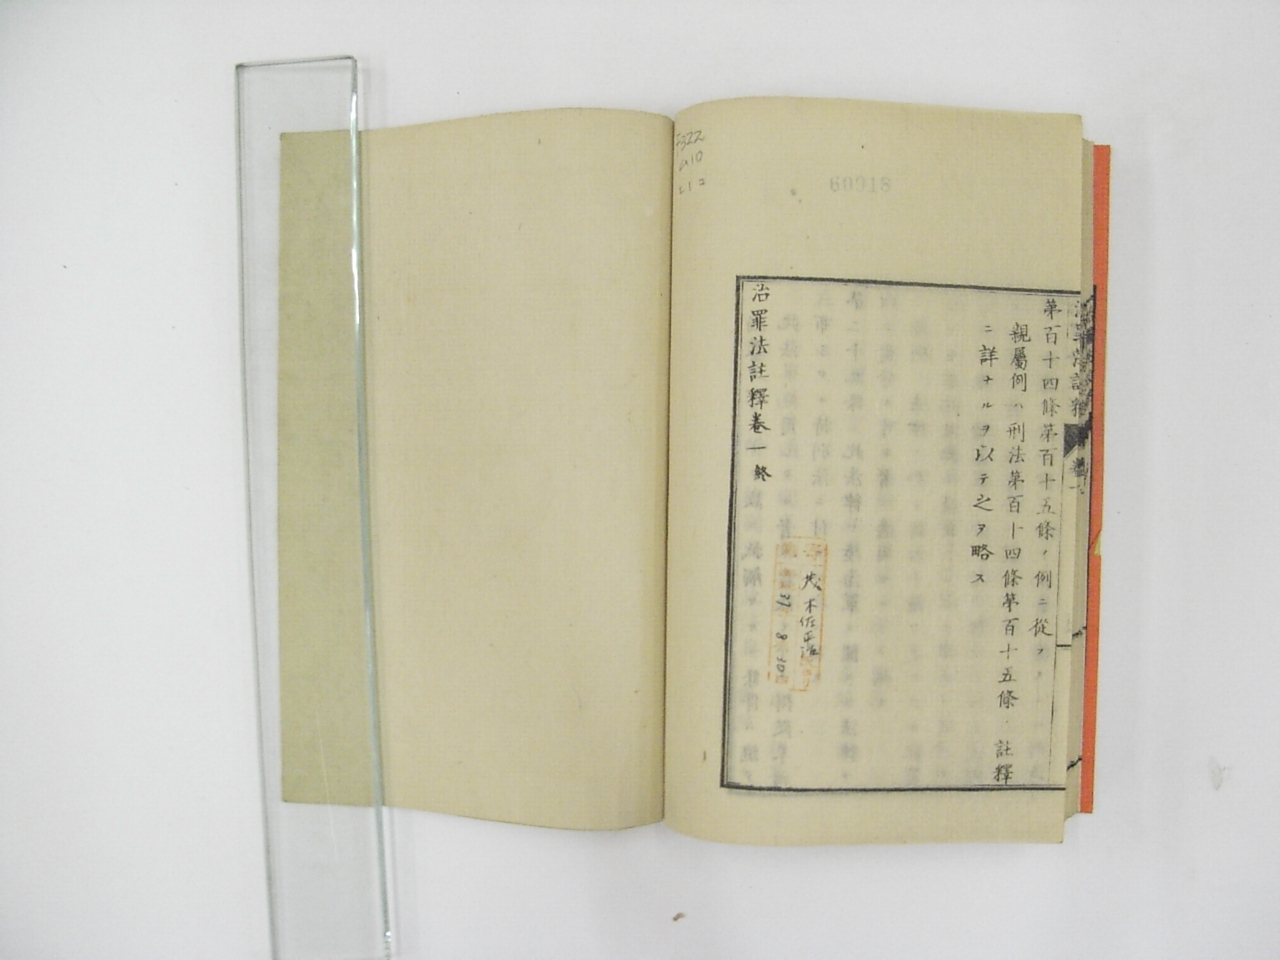 第百十四條第百十五條ノ例ニ從フ
親屬例ハ刑法第百十四條第百十五條ノ註釋
ニ詳ナルヲ以テ之ヲ略ス
治罪法註釋卷一終
治罪法註釋 卷一
60918